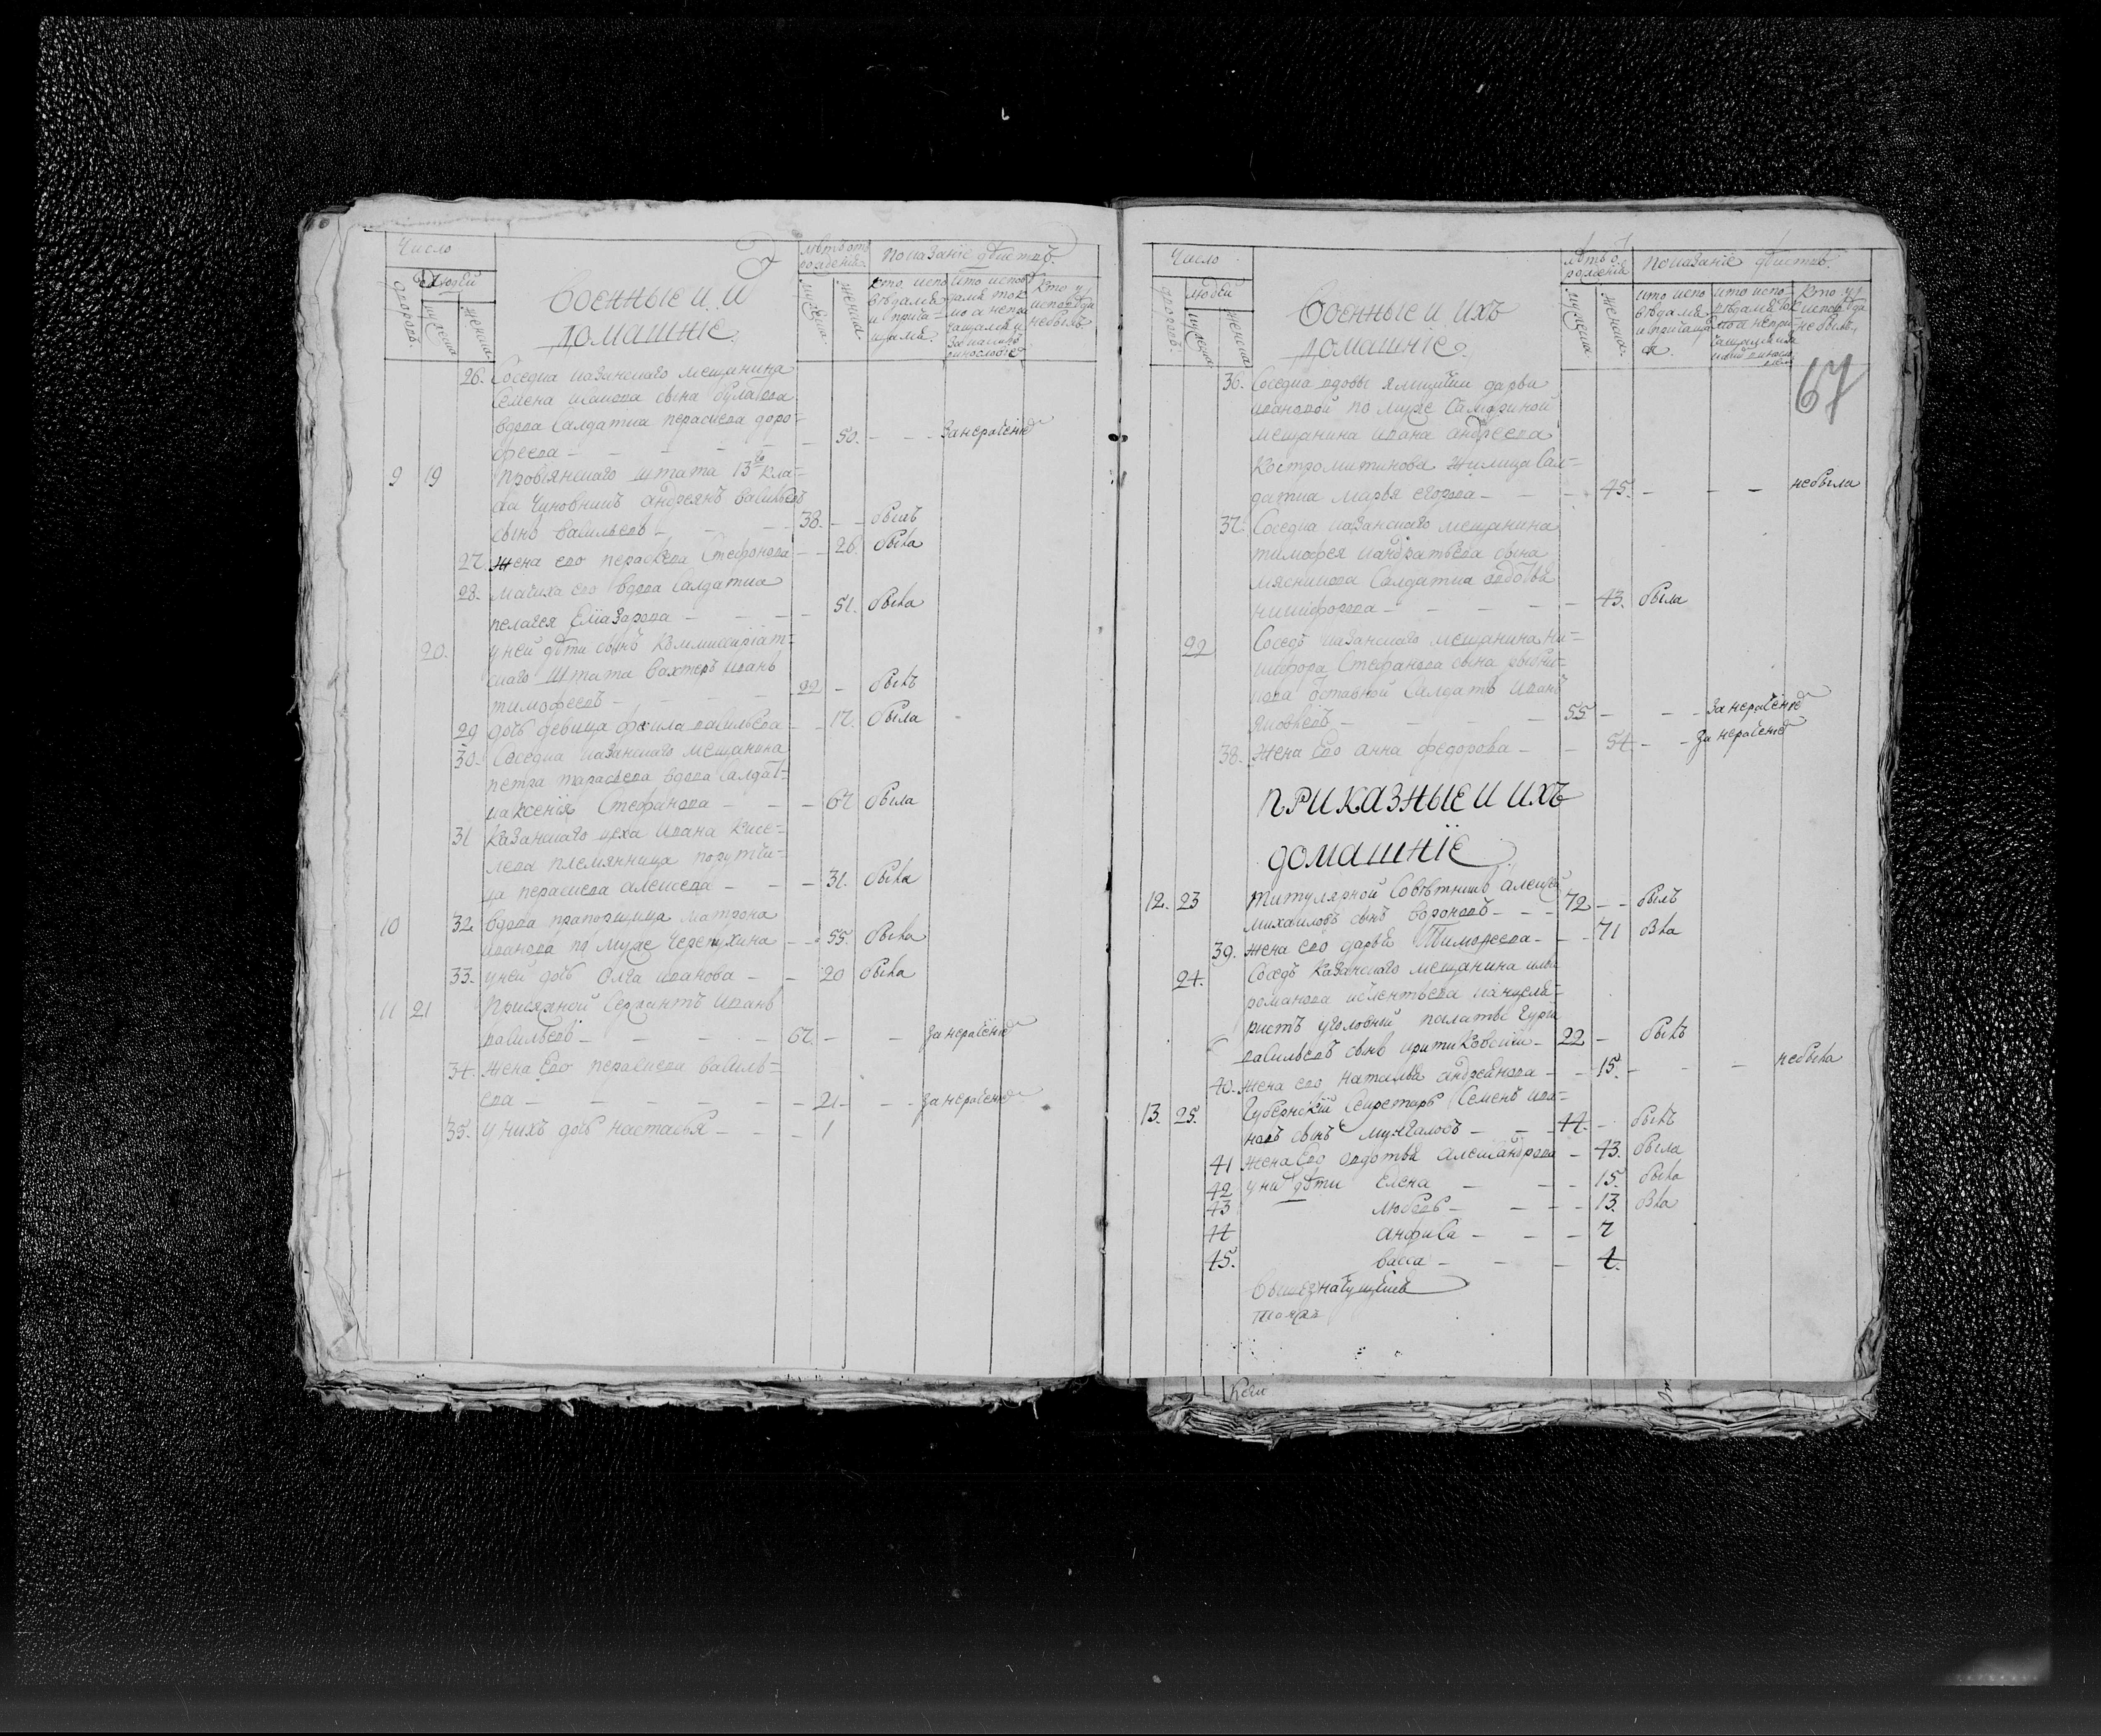 Число
людей
дворовъ
мужеска
женска
Военные и и
домашніе
лѣтъ отъ
рожденія
мужеска
женска
Показаніе дѣйствъ
кто испо
вѣдался
и прича
щался
кто испов
дался ток
мо а не при
чащался и
за какимъ
винословіемъ
кто у
исповѣди
не былъ
26. Соседка казанскаго мещанина
Семена сына Булатова
вдова Салдатка пераскева доро-
феева - 50. - - за нерачение
9 19 Провіянскаго штата 13го кла-
са Чиновникъ андреянъ васильевъ
сынъ васильевъ - 38. - - былъ
27. жена ево пераскева Стефанова - 26. была
28. мачиха ево вдова Салдатка
пелагея Елиазарова - 51. была
20. у ней дѣти сынъ Коммиссаріат-
скаго Штата вахтеръ иванъ
тимофеевъ - 22 - былъ
29 дочь девица васильева - 17. была
30. Соседка казанскаго мещанина
петра тарасьева вдова Салдат-
ка ксенія Стефанова - 67 была
31 Казанскаго цеха ивана Кисе-
лева племянница порутчи-
ца пераскева алексеева - 31. была
10 32. вдова прапорщица матрона
иванова по муже Черепухина - 55. была
33. у ней дочь Олга иванова - 20 была
11 21 Присяжной Сержантъ иванъ
васильевъ - 67. - - за нерачение
34. жена Ево пераскева василь-
ева - 21 - - за нерачение
35. у нихъ дочь настасья - 1
Число
людей
дворовъ
мужеска
женска
Военные и ихъ
домашніе
лѣтъ о
рожденія
мужеска
женска
Показаніе дѣйствъ
кто испо
вѣдался
и причащал
ся
кто испо-
вѣдался ток
мо а не при
чащался
кто у
исповѣди
не былъ
67
36. Соседка вдовы дарьи
ивановой по муже
мещанина ивана андреева
Костромитинова жилица Сал-
датка марья егорова - 45. - - - не была
37. Соседка казанскаго мещанина
тимофея кандратьева сына
мясникова Салдатка авдотья
никифорова - 43. была
22 Соседъ казанскаго мещанина ни-
кифора Стефанова сына рыбни-
кова Отставной Салдатъ иванъ
яковлевъ - 55 - - - за нерачение
38. жена Ево анна федорова - 54 - - за нерачение
приказные и ихъ
домашніе
12. 23 Титулярной Совѣтникъ алексей
михаиловъ сынъ вороновъ - 72 - - былъ
39. жена ево дарья Тимофеева - 71 бла
24. Соседъ Казанскаго мещанина ильи
романова канцеля-
ристъ уголовной палаты
васильевъ сынъ - 22 - былъ
40. жена ево наталья андреянова - 15. - - - не была
13. 25. Губернскій Секретарь Семенъ ива-
новъ сынъ - 44. - былъ
41 жена Ево авдотья александрова - 43. была
42 у ни дѣти Елена - 15. была
43 любовь - 13. бла
44 анфиса - 7
45. васса - 4.